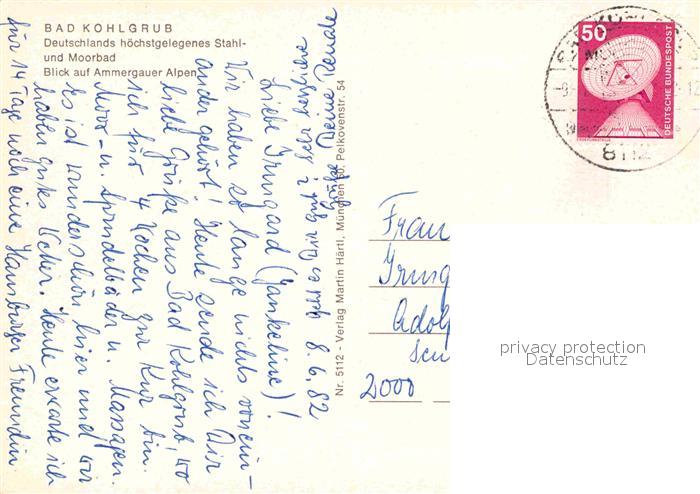 BAD KOHLGRUB
Deutschlands höchstgelegenes Stahl-
und Moorbad
Blick auf Ammergauer Alpen
8.6.82
Liebe Irmgard (Jankeline)!
Wir haben so lange nichts vonein-
ander gehört! Heute sende ich Dir
liebe Grüße aus Bad Kohlgrub, wo
ich für 4 Wochen zur Kur bin.
Moor- u. Sprudelbäder u. Massagen.
Es ist wunderschön hier und wir
haben gutes Wetter. Heute erwarte ich
für 14 Tage noch eine Hamburger Freundin.
Deine Renate
Nr. 5112 - Verlag Martin Härtl, München 60, Pelkovenstr. 54
50
DEUTSCHE BUNDESPOST
8112
Frau
Irmg
Adol
2000
privacy protection
Datenschutz